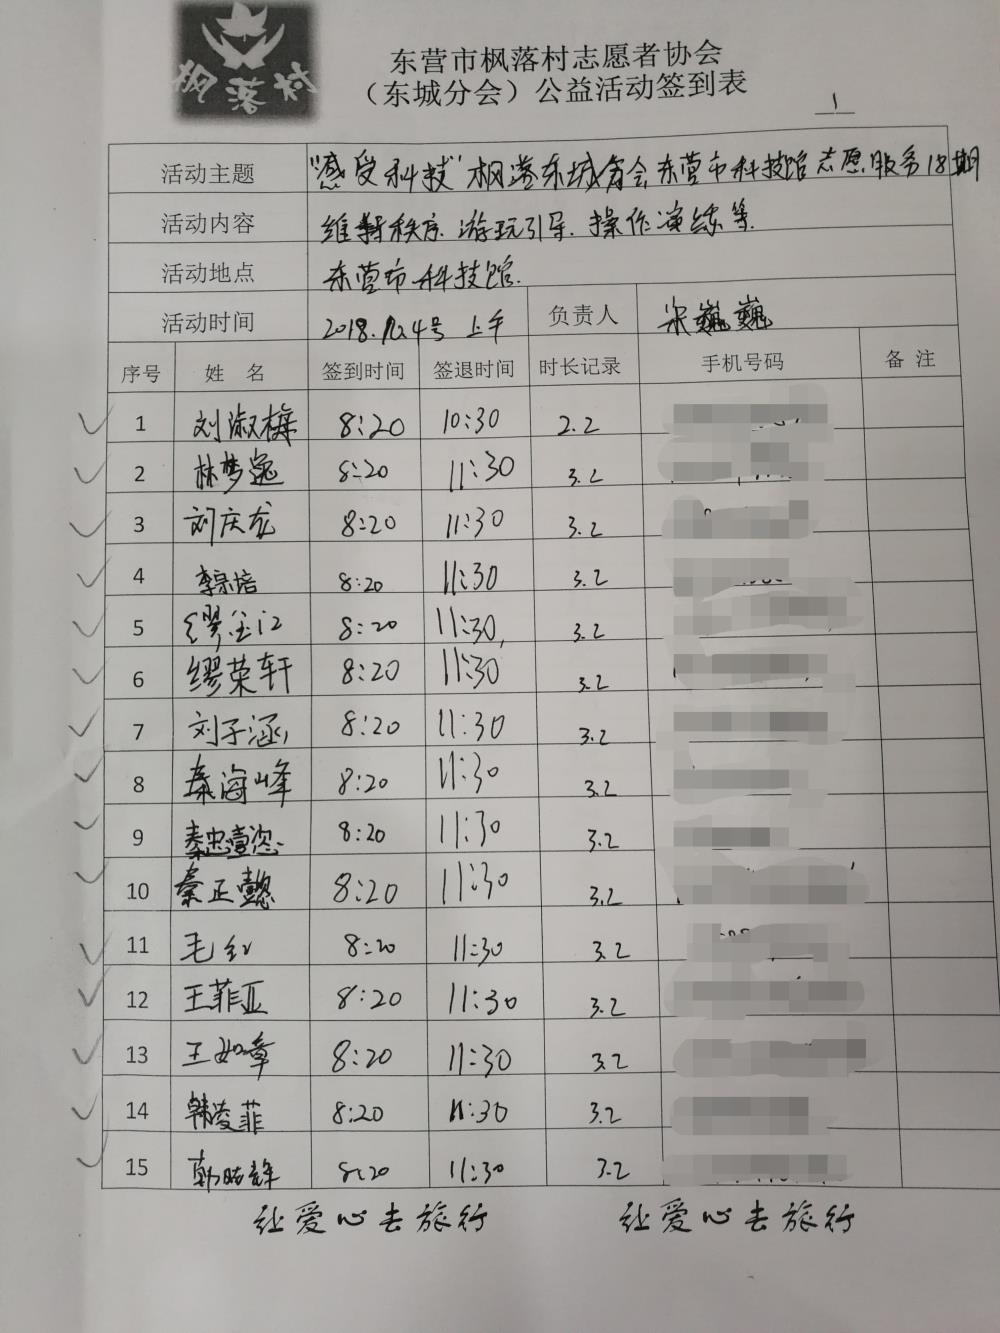 枫落村
东营市枫落村志愿者协会
（东城分会）公益活动签到表
1
活动主题 “感受科技”枫落东城分会东营市科技馆志愿服务18期
活动内容 维持秩序、游玩引导、操作演练等
活动地点 东营市科技馆.
活动时间 2018. 4号 上午 负责人 宋巍巍
序号 姓 名 签到时间 签退时间 时长记录 手机号码 备 注
1 刘淑梅 8:20 10:30 2.2
2 林梦逸 8:20 11:30 3.2
3 刘庆龙 8:20 11:30 3.2
4 李宗培 8:20 11:30 3.2
5 缪金江 8:20 11:30 3.2
6 缪荣轩 8:20 11:30 3.2
7 刘子涵 8:20 11:30 3.2
8 秦海峰 8:20 11:30 3.2
9 秦忠壹恣 8:20 11:30 3.2
10 秦正懿 8:20 11:30 3.2
11 毛红 8:20 11:30 3.2
12 王菲亚 8:20 11:30 3.2
13 王如章 8:20 11:30 3.2
14 韩凌菲 8:20 11:30 3.2
15 8:20 11:30 3.2
让爱心去旅行 让爱心去旅行